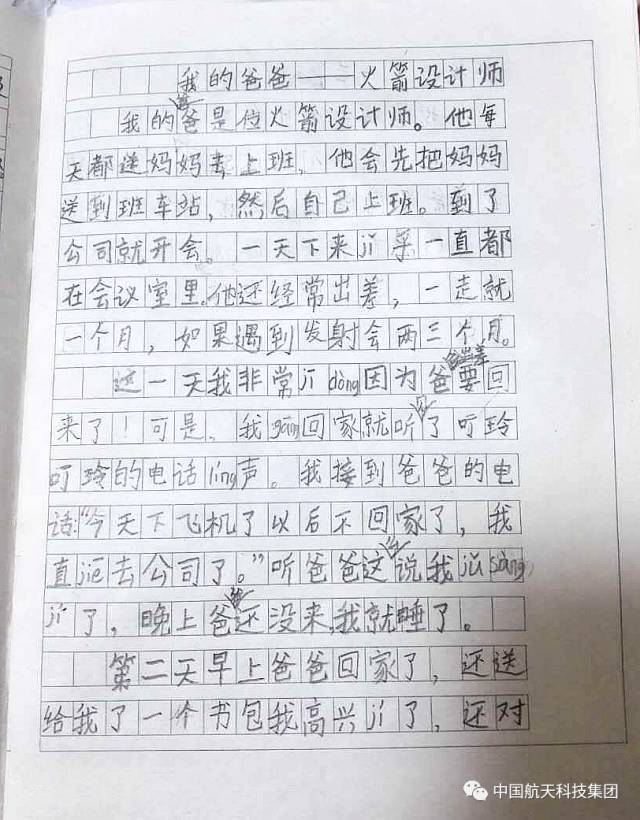 我的爸爸——火箭设计师
我的爸爸是位火箭设计师。他每
天都送妈妈去上班，他会先把妈妈
送到班车站，然后自己上班。到了
公司就开会。一天下来jǐ乎一直都
在会议室里。他还经常出差，一走就
一个月，如果遇到发射会两三个月。
这一天我非常jī dòng因为爸爸出差要回
来了！可是，我gāng回家就听见了叮玲
叮玲的电话líng声。我接到爸爸的电
话：“今天下飞机了以后不回家了，我
直jiē去公司了。”听爸爸这么说我jǔ sàng
jí了，晚上爸爸还没来，我就睡了。
第二天早上爸爸回家了，还送
给我了一个书包我高兴jí了，还对
中国航天科技集团